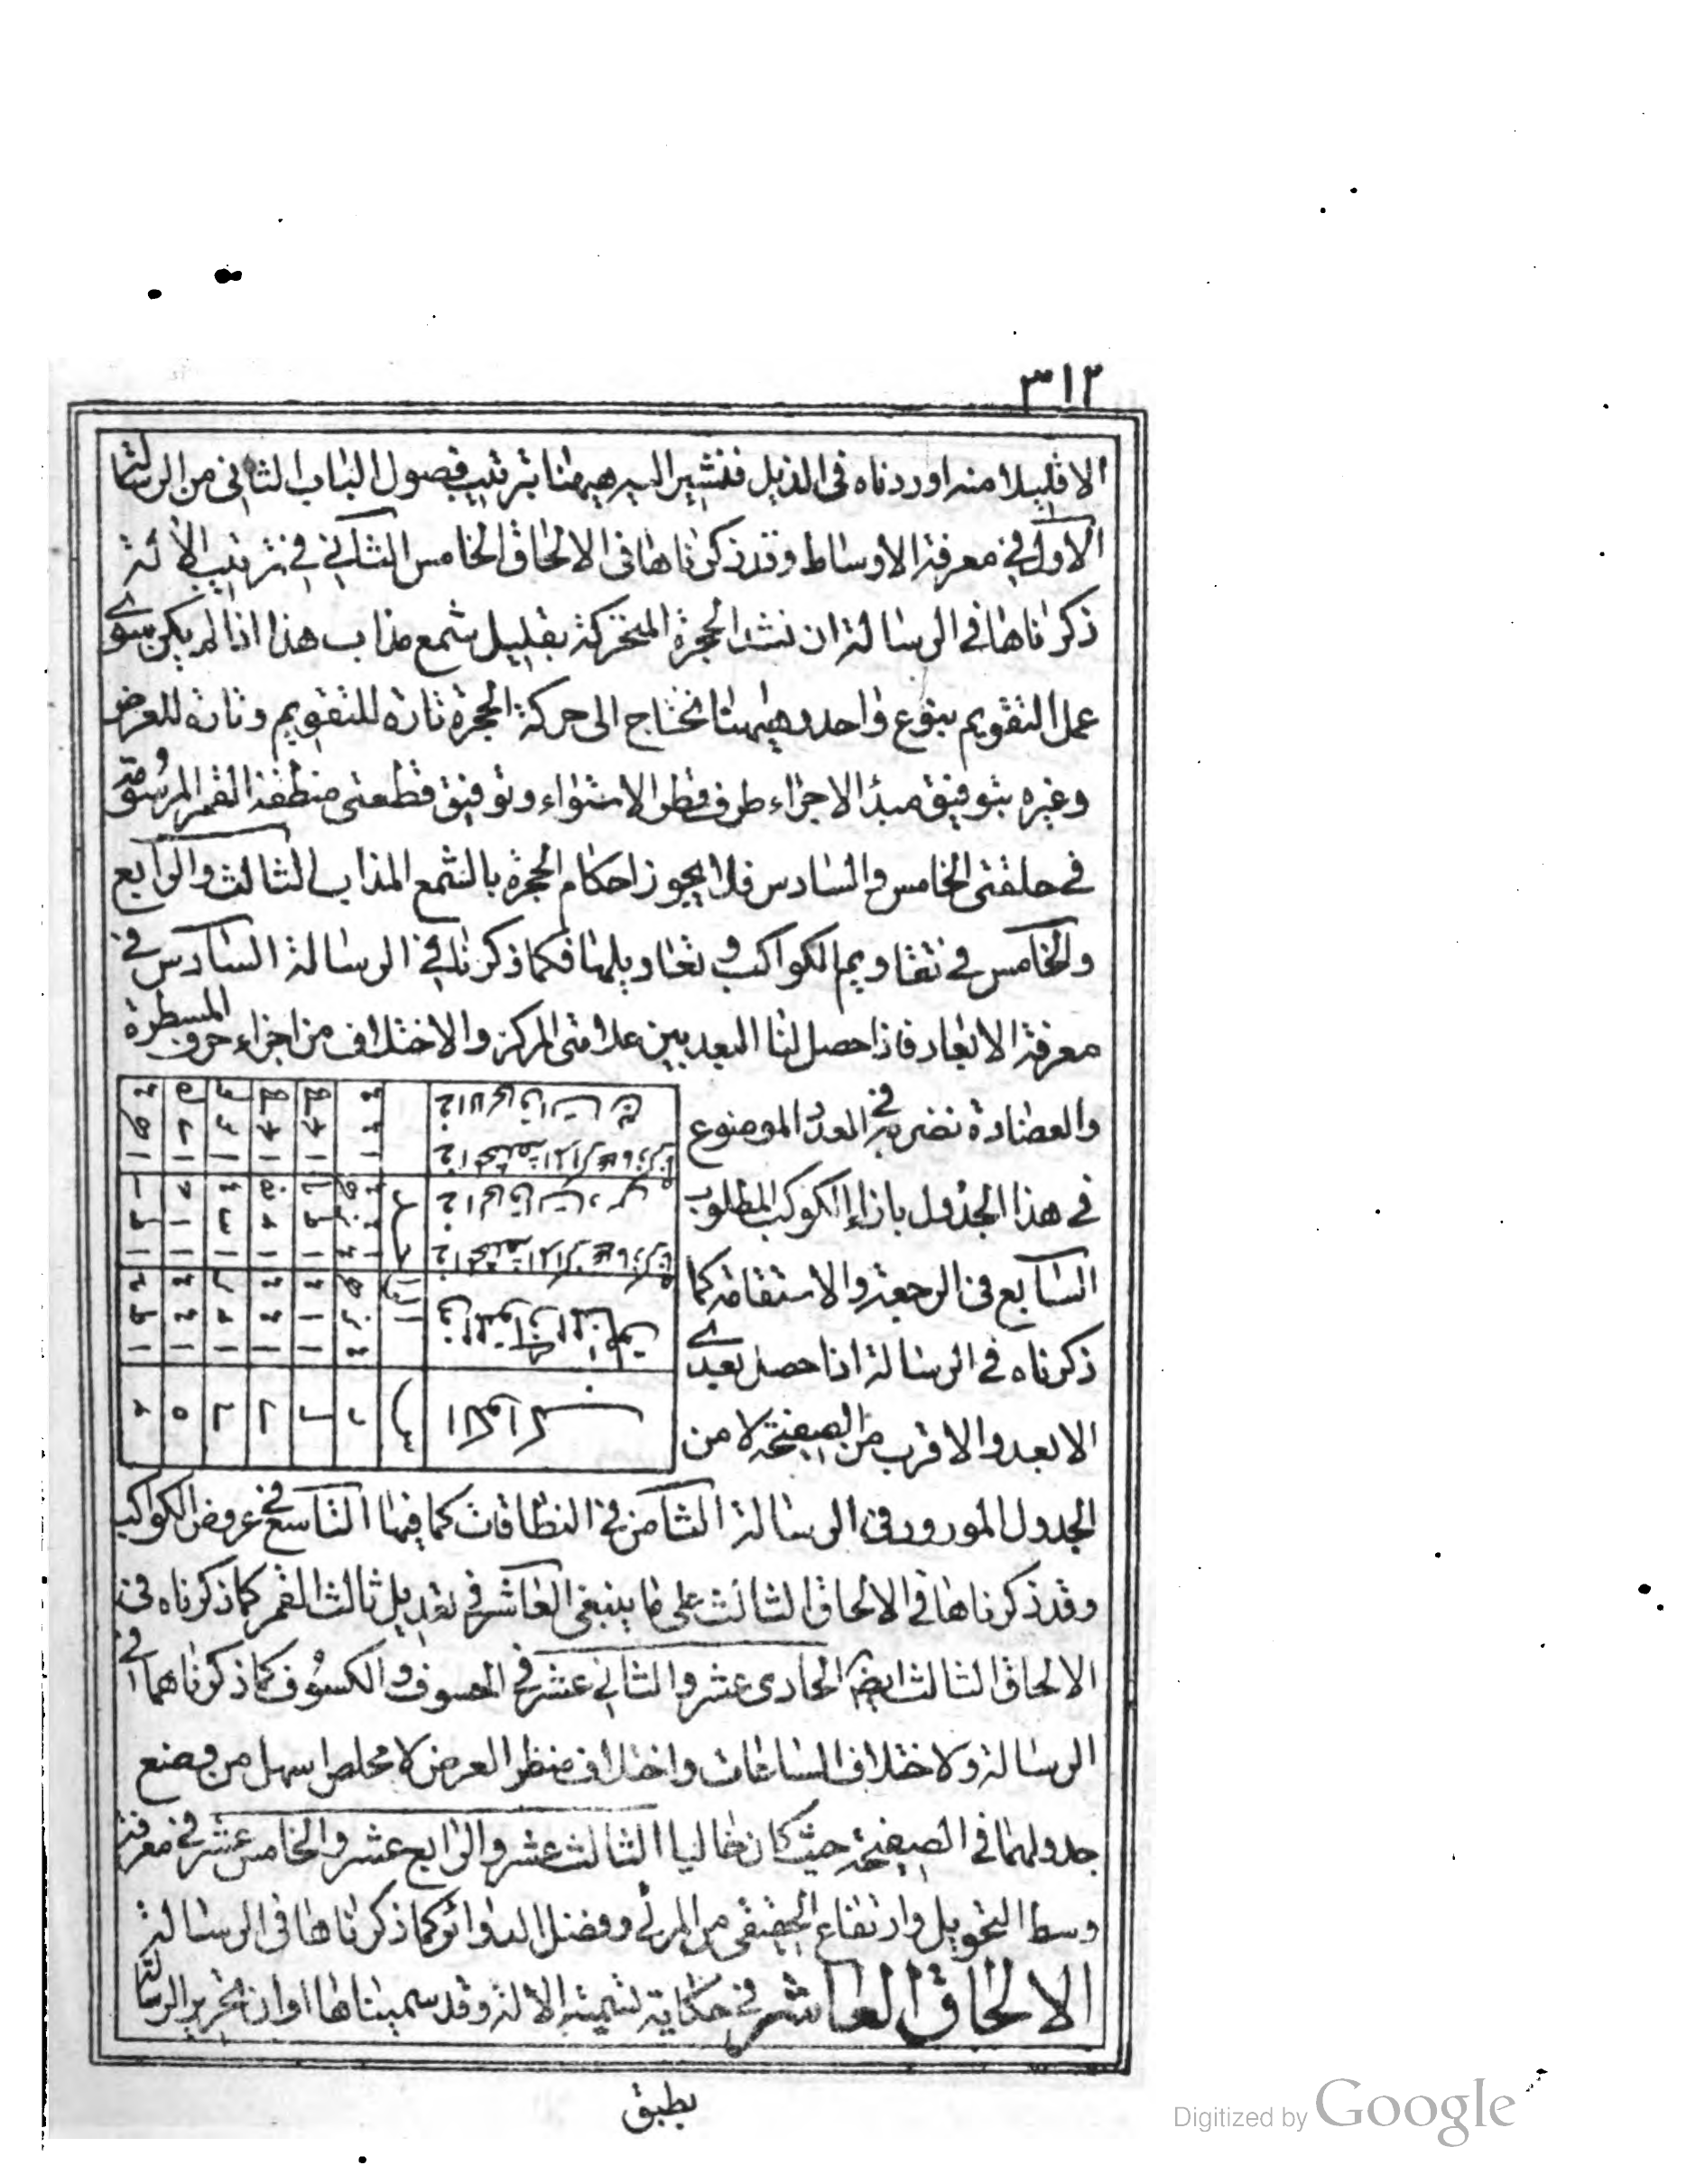 ٣١٢
الا قليلا منه اوردناه فى الذيل فنشير اليه ههنا بترتيب فصول الباب الثانى من الرسالة
الاول فى معرفة الاوساط وقد ذكرناها فى الالحاق الخامس الثانى فى ترتيب الالة
ذكرناها فى الرسالة ان نشد الحجرة المتحركة بقليل شمع مذاب هذا اذا لم يكن سوى
عمل التقويم بنوع واحد وههنا نحتاج الى حركة الحجرة تارة للتقويم وتارة للعرض
وغيره بتوفيق مبدأ الاجزاء طرف قطر الاستواء وتوفيق قطعتى منطقة القمر المرسومة
فى حلقتى الخامس والسادس فلا يجوز احكام الحجرة بالشمع المذاب الثالث والرابع
والخامس فى تقاويم الكواكب وتعاديلها فكما ذكرنا فى الرسالة السادس فى
معرفة الابعاد فاذا حصل لنا البعد بين علامتى المركز والاختلاف من اجزاء حروف المسطرة
والعضادة نضربه فى العدد الموضوع
فى هذا الجدول بازاء الكوكب المطلوب
السابع فى الرجعة والاستقامة كما
ذكرناه فى الرسالة اذا حصل بعدى
الابعد والاقرب من الصفيحة لا من
الجدول المورود فى الرسالة الثامن فى النطاقات كما فيها التاسع فى عروض الكواكب
وقد ذكرناها فى الالحاق الثالث على ما ينبغى العاشر فى تعديل ثالث القمر كما ذكرناه فى
الالحاق الثالث ايضا الحادى عشر والثانى عشر فى الخسوف والكسوف كما ذكرناهما فى
الرسالة ولاختلاف الساعات واختلاف منظر العرض لا مخلص اسهل من وضع
جدولهما فى الصفيحة حيث كان خاليا الثالث عشر والرابع عشر والخامس عشر فى معرفة
وسط التحويل وارتفاع الحقيقى من المرئى وفضل الدوائر كما ذكرناها فى الرسالة
الالحاق العاشر فى حكاية تسمية الالة وقد سميناها اوان تحرير الرسالة
يطبق
Digitized by Google